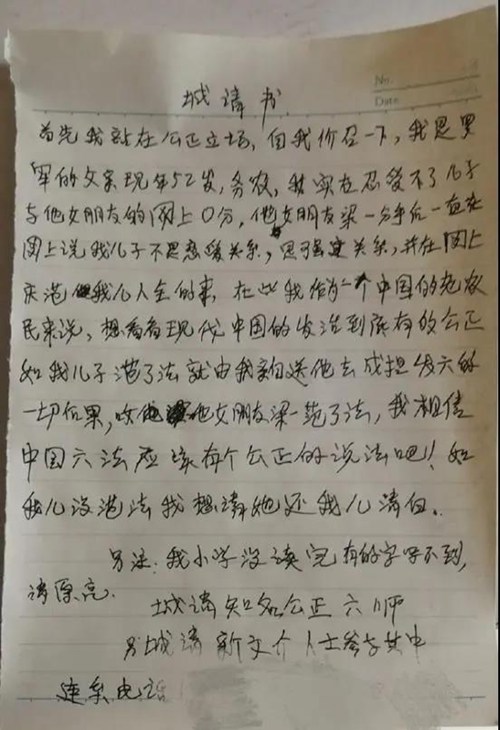 No.
Date
城请书
首先我站在公正立场，自我价召一下，我是黑
军的父亲现年52岁，务农，我实在忍受不了儿子
与他女朋友的网上〇分，他女朋友梁一分手后一直在
网上说我儿子不是恋爱关系，是可强迫关系，并在网上
我儿人全的事，在此我作为一个中国的老农
民来说，想看看现代中国的发治到底有放公正
如我儿子范了法就由我亲自送他去成担发六的
一切后果，他女朋友梁一范了法，我相信
中国六法应该有个公正的说法吧！如
我儿没范法我想请她还我儿清白。
另注：我小学没读完有的字写不到，
请原亮．
城请知名公正六师
另城请新文介人士参与其中
连系电话